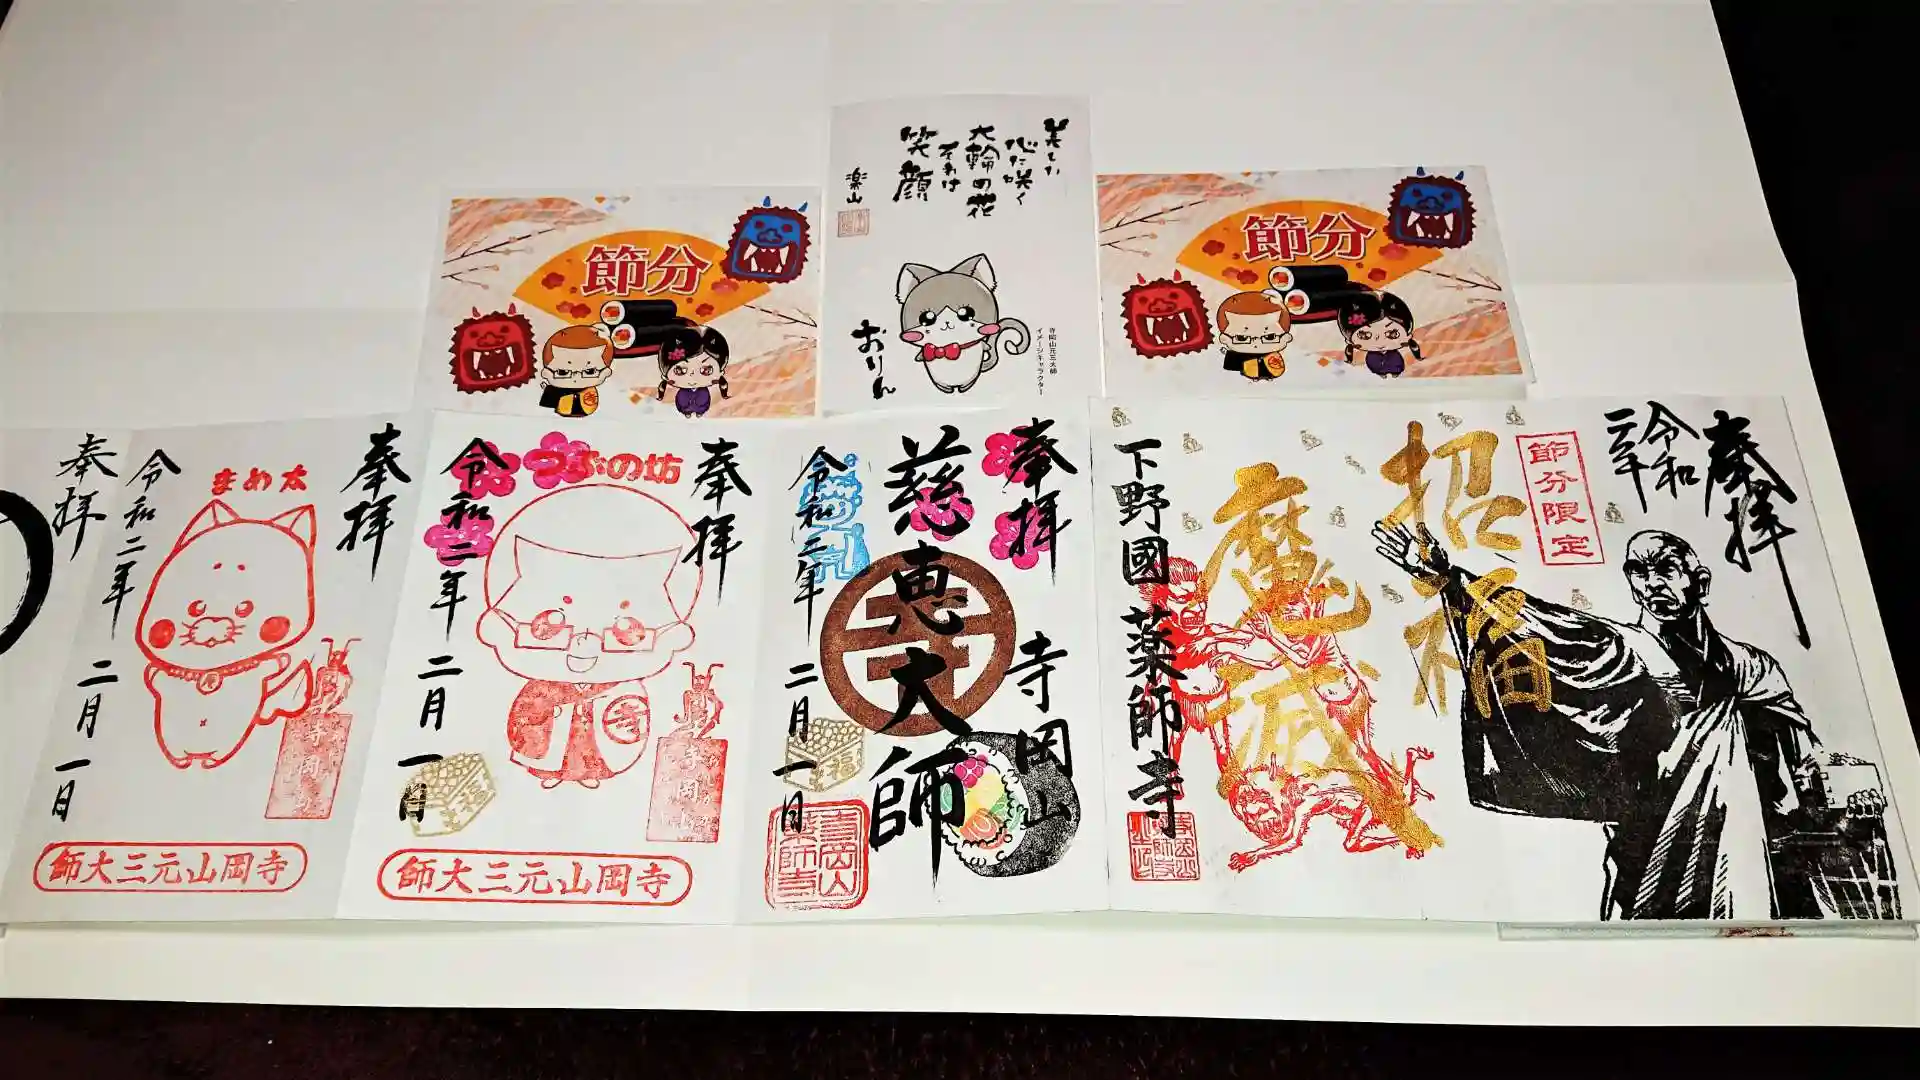 節分
美しい
心に咲く
大輪の花
それは
笑顔
楽山
おりん
寺岡山元三大師
イメージキャラクター
節分
奉拝
令和二年
節分限定
招福
魔滅
下野國薬師寺
奉拝
寺岡山
慈恵大師
令和二年二月一日
寺
福
寺岡山
薬師寺
奉拝
つぶの坊
令和二年二月一日
寺
福
寺岡山
師大三元山岡寺
奉拝
まめ太
令和二年二月一日
寺岡山
師大三元山岡寺
奉拝